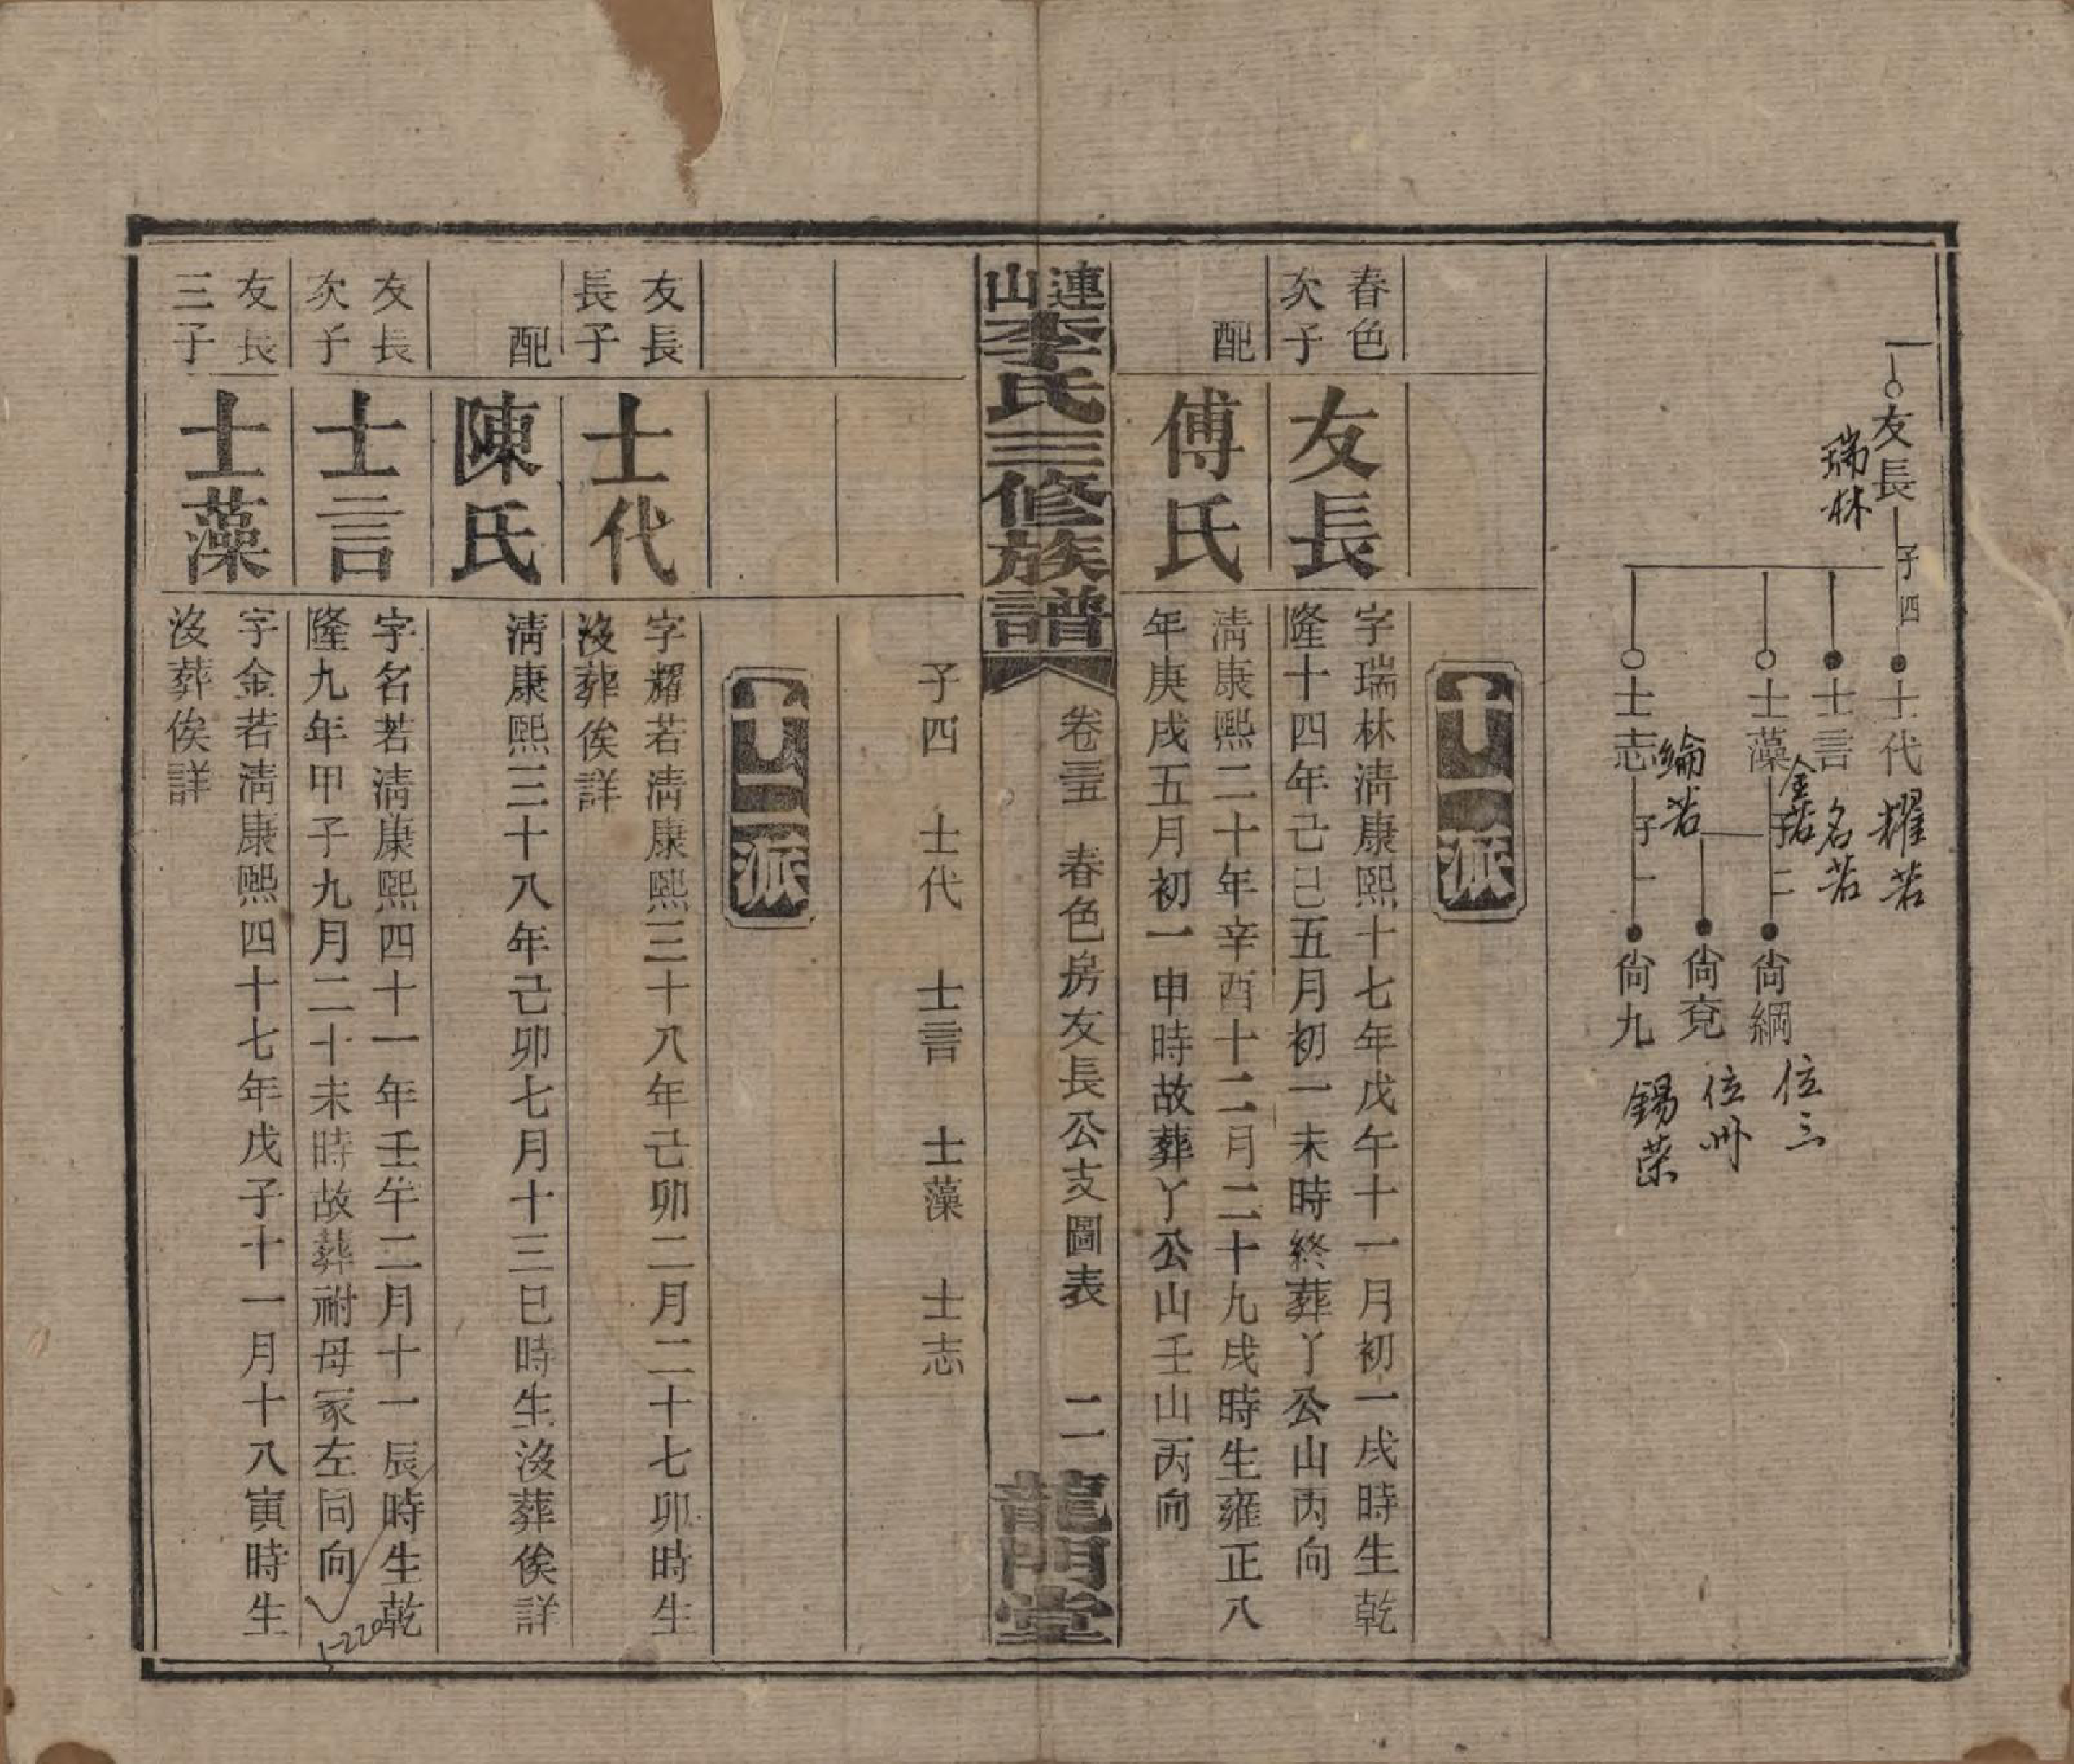 一
友長
瑞林
子四
士代
耀若
士言
名若
士藻
金若
子二
士志
綸若
子一
尙綱
位三
尙兗
位州
尙九
錫荣
十一派
春色
次子
友長
字瑞林淸康熙十七年戊午十一月初一戌時生乾
隆十四年己巳五月初一未時終葬丫公山丙向
配
傅氏
淸康熙二十年辛酉十二月二十九戌時生雍正八
年庚戌五月初一申時故葬丫公山壬山丙向
連山李氏三修族譜
卷三五
春色房友長公支圖表
二
龍門堂
子四 士代 士言 士藻 士志
十二派
友長
長子
士代
字耀若淸康熙三十八年己卯二月二十七卯時生
沒葬俟詳
配
陳氏
淸康熙三十八年己卯七月十三巳時生沒葬俟詳
友長
次子
士言
字名若淸康熙四十一年壬午二月十一辰時生乾
隆九年甲子九月二十未時故葬祔母冢左同向
5-220
友長
三子
士藻
字金若淸康熙四十七年戊子十一月十八寅時生
沒葬俟詳